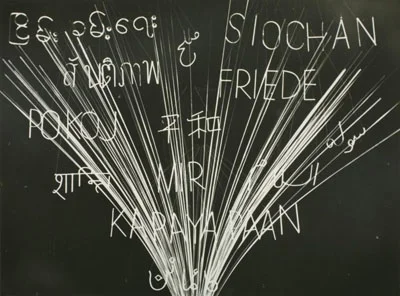 ငြိမ်းချမ်းရေး صلح SIOCHAN
สันติภาพ FRIEDE
POKOJ 平和
शान्ति MIR السلام
KAPAYAPAAN